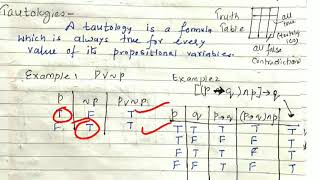 Tautologies:-
A tautology is a formula
which is always true for every
value of its propositional variables.
Truth Table
all true
all false
Contradiction
Example 1 P∨~P
Example 2
[(P→q)∧p]→q
P ~P P∨~P
T F T
F T T
P q P→q (P→q)∧p
T T T T T
T F F F T
F T T F T
F F T F T